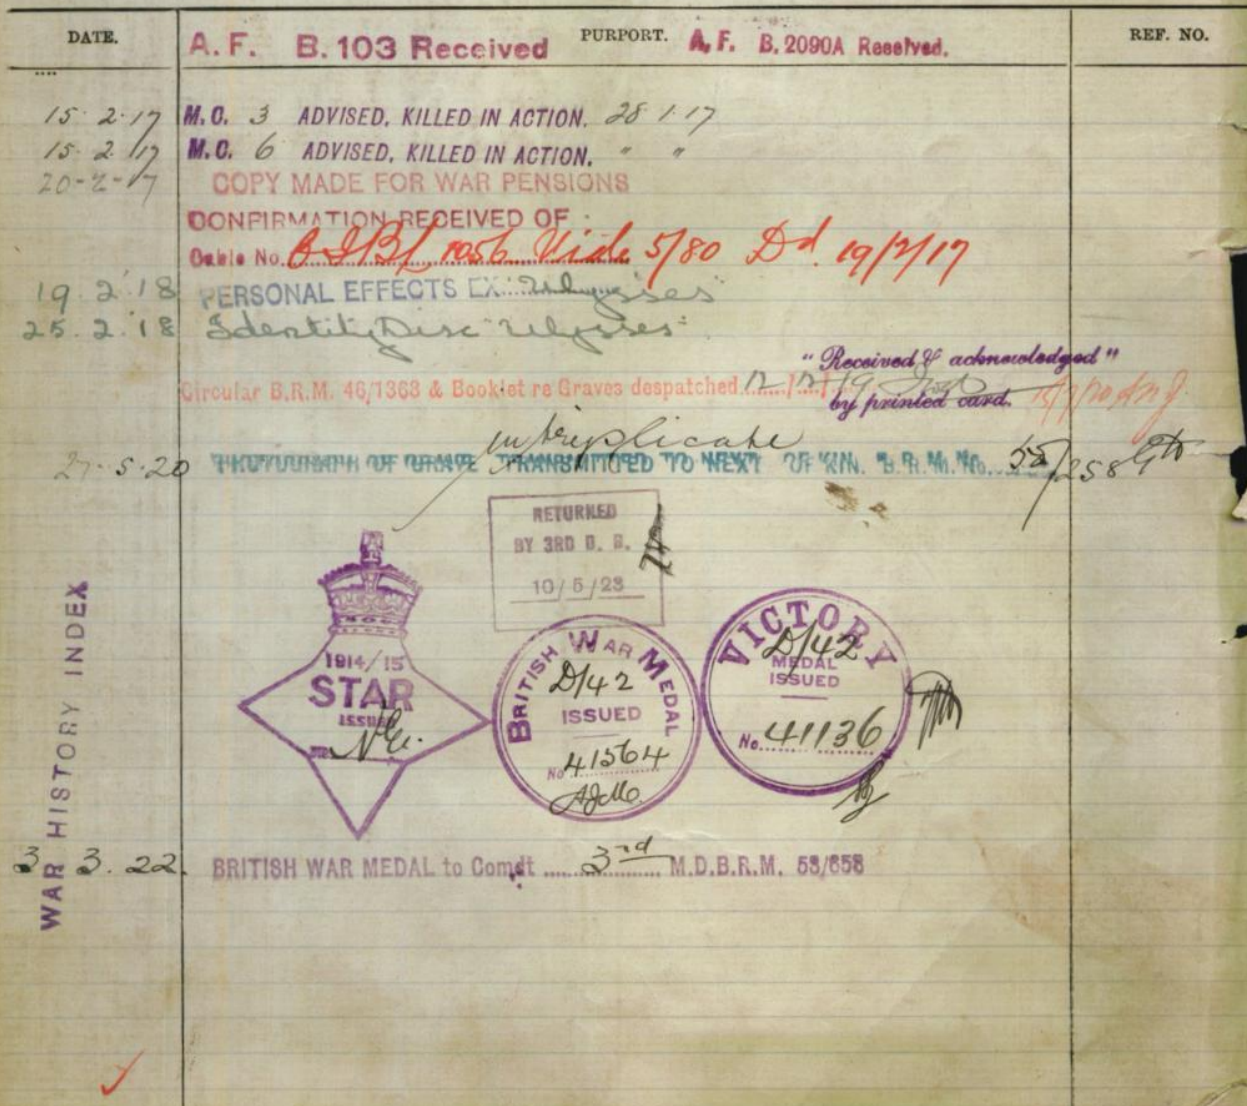 DATE. PURPORT. REF. NO.
A. F. B. 103 Received A. F. B. 2090A Received.
15. 2. 17 M.C. 3 ADVISED, KILLED IN ACTION. 28 1 17
15. 2. 17 M.C. 6 ADVISED, KILLED IN ACTION. " "
20-2-17 COPY MADE FOR WAR PENSIONS
CONFIRMATION RECEIVED OF :
Cable No. 1056 Vide 5/80 Dd 19/2/17
19. 2. 18 PERSONAL EFFECTS EX "Ulysses"
25. 2. 18 Identity Disc "Ulysses"
"Received & acknowledged"
Circular B.R.M. 46/1363 & Booklet re Graves despatched
by printed card.
in triplicate
27-5-20 PHOTOGRAPH OF GRAVE TRANSMITTED TO NEXT OF KIN. B.R.M. No. 58/258
RETURNED
BY 3RD
10/5/23
1914/15
STAR
ISSUED
BRITISH WAR MEDAL
D/42
ISSUED
No 41564
VICTORY
D/42
MEDAL
ISSUED
No. 41136
WAR HISTORY INDEX
3. 3. 22. BRITISH WAR MEDAL to Comdt 3rd M.D.B.R.M. 58/658